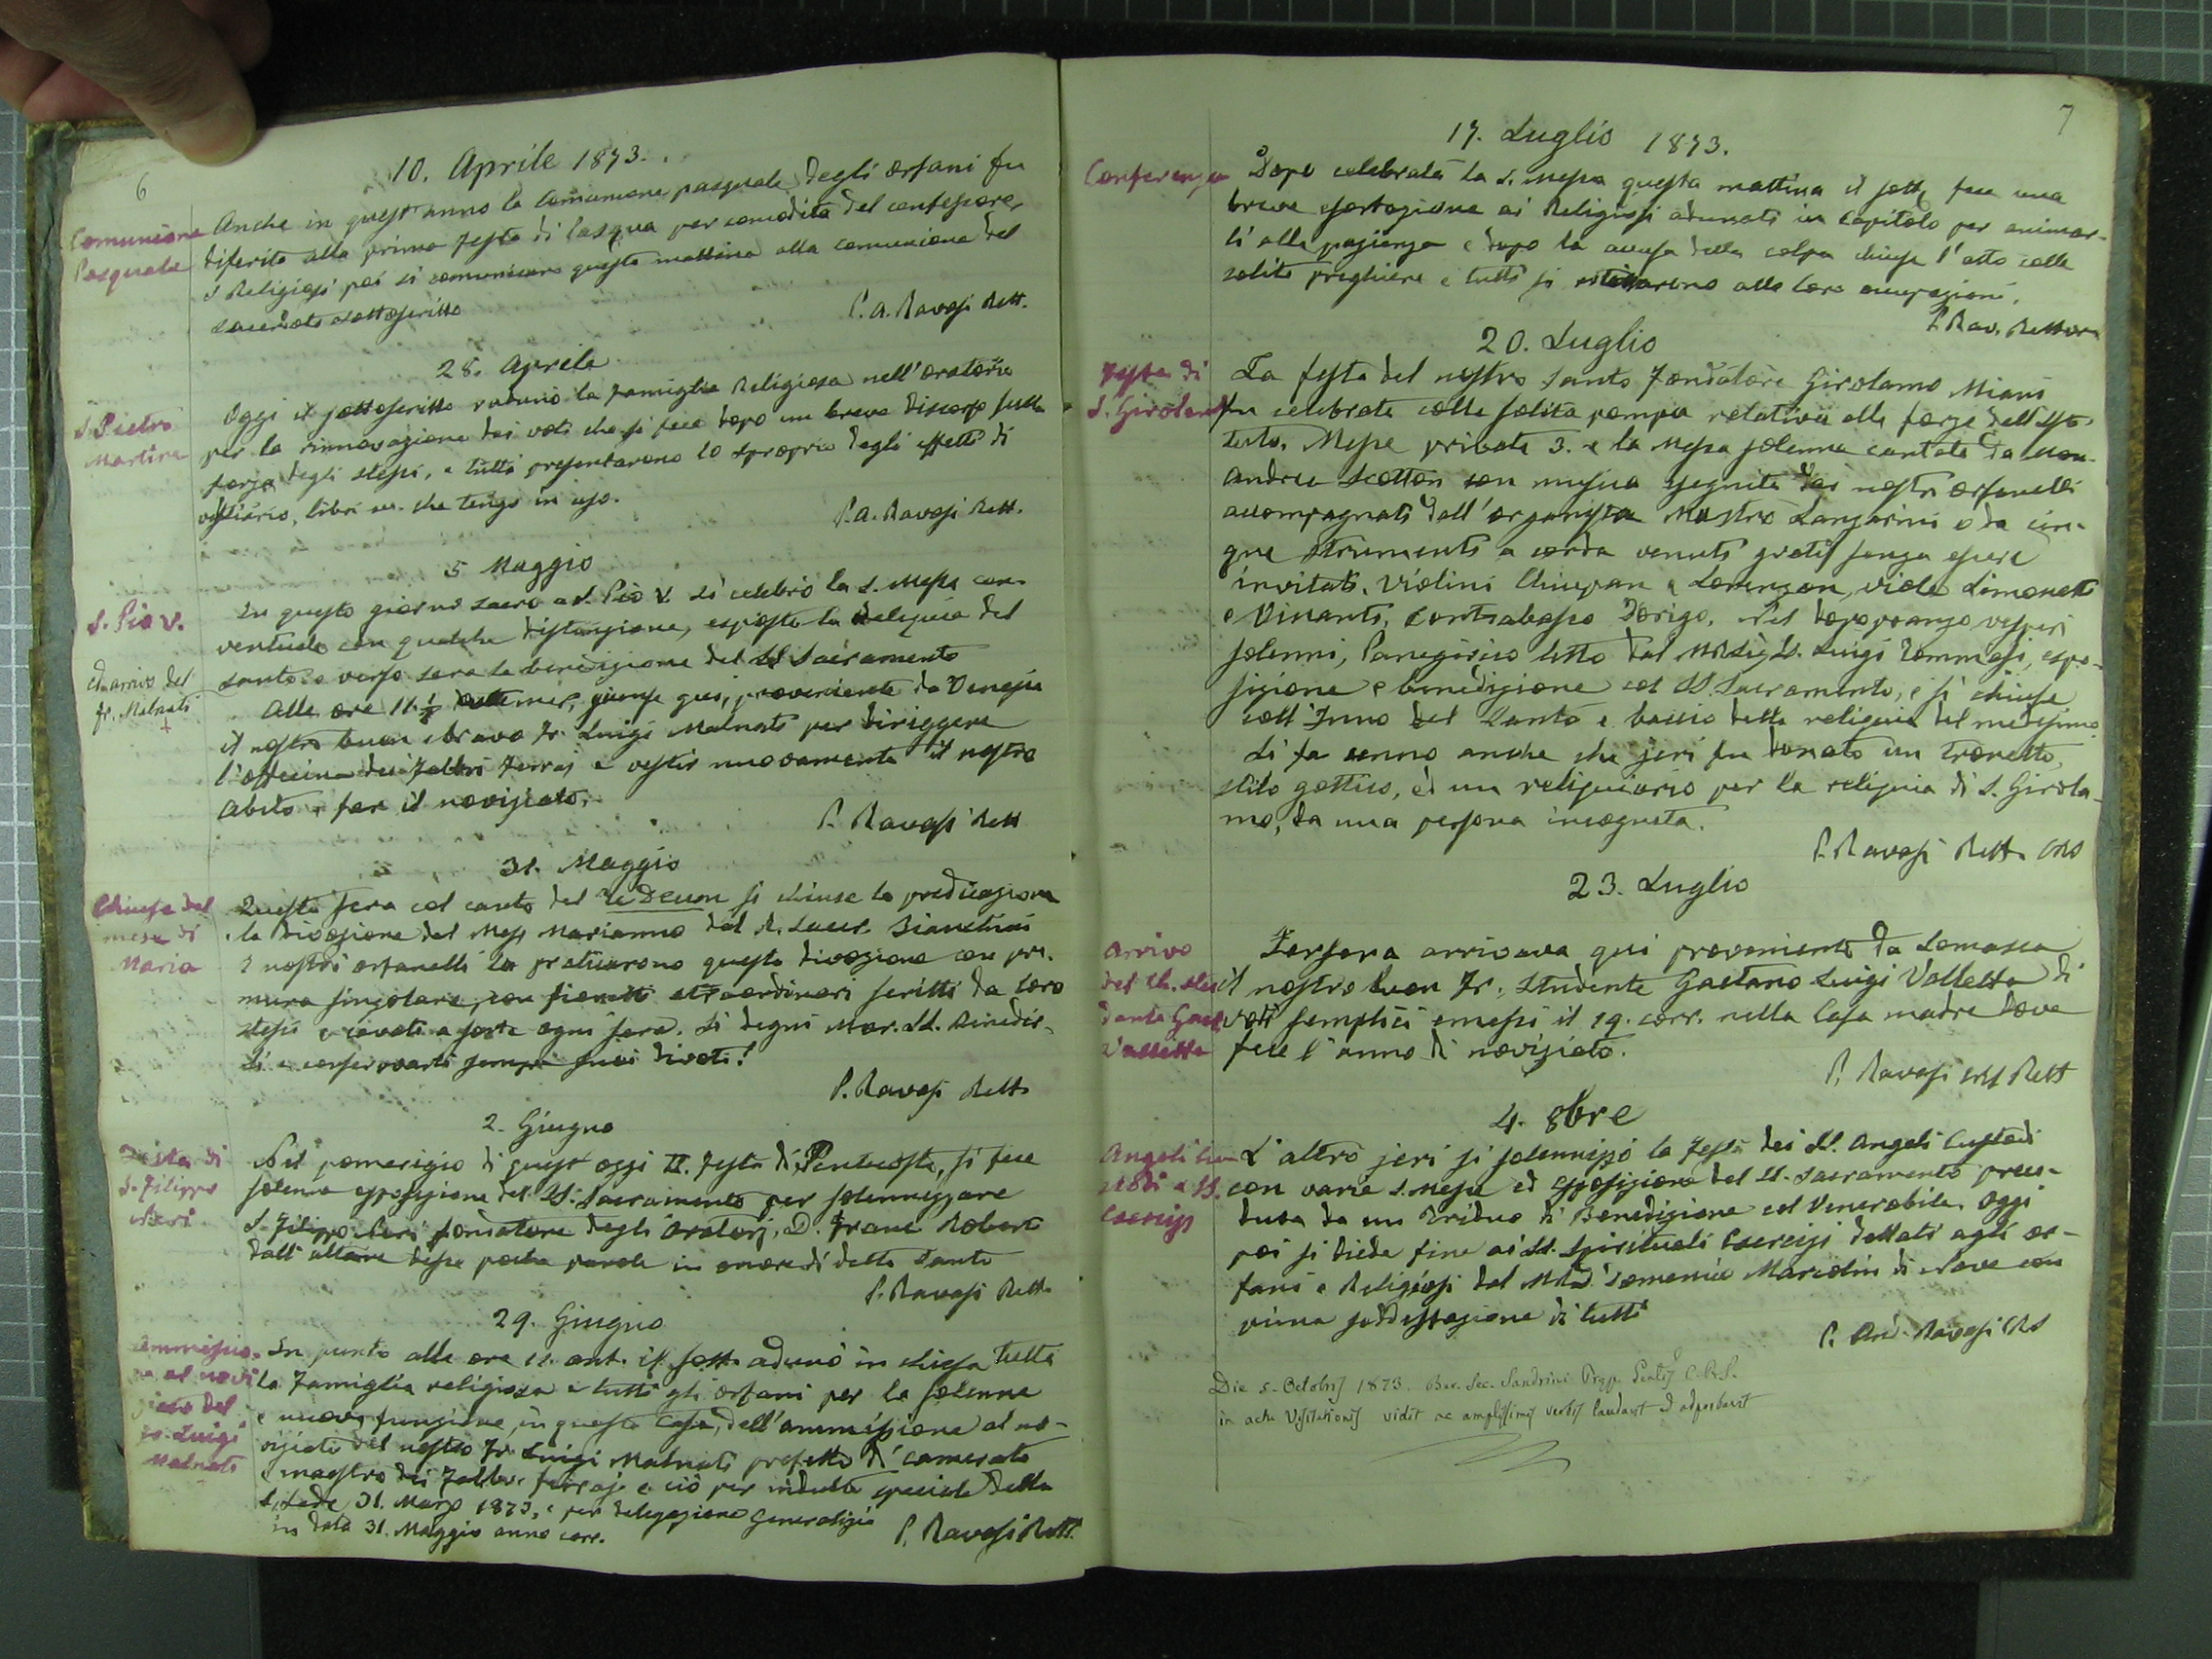 6
10. Aprile 1873.
Comunione
Pasquale
Anche in quest'anno la Comunione pasquale degli orfani fu
diferita alla prima festa di Pasqua per comodità del confessore,
I Religiosi poi si comunicaro questa mattina alla comunione del
sacerdote sottoscritto
P. A. Ravasi Rett.
28. Aprile
S. Pietro
Martire
Oggi il sottoscritto radunò la famiglia Religiosa nell'oratorio
per la rinnovazione dei voti che si fece dopo un breve discorso sulla
forza degli stessi, e tutti presentarono lo sproprio degli effetti di
vestiario, libri ec. che tengo in uso.
P. A. Ravasi Rett.
5 Maggio
S. Pio V.
In questo giorno sacro a S. Pio V. si celebrò la S. Messa con-
ventuale con qualche distinzione, esposta la Reliquia del
santo e verso sera la benedizione del SS Sacramento
ed arrivo del
fr. Malnati
+
Alle ore 11. ½ giunse qui, proveniente da Venezia
il nostro buon e bravo Fr. Luigi Malnati per diriggere
l'officina dei Fabbri Ferraj e vestir nuovamente il nostro
abito e far il noviziato.
P. Ravasi Rett
31. Maggio
Chiusa del
mese di
Maria
Questa sera col canto del Te Deum si chiuse la predicazione
e la divozione del Mese Marianno dal R. Sacer. Bianchini
I nostri orfanelli la praticarono questa divozione con pre-
mura singolare, con fioretti straordinari scritti da loro
stessi e cavati a sorte ogni sera. Si degni Mar. SS. benedir-
li e conservarli sempre suoi divoti!
P. Ravasi Rett.
2. Giugno
Festa di
S. Filippo
Neri.
Nel pomerigio di quest'oggi II. festa di Pentecoste, si fece
solenne esposizione del SS. Sacramento per solennizzare
S. Filippo Neri fondatore degli Oratorj. D. Franc Robert
dall'altare disse poche parole in onore di detto Santo
P. Ravasi Rett.
29. Giugno
Ammissio-
ne al novi
ziato del
fr. Luigi
Malnati
In punto alle ore 11. ant. il sott. adunò in Chiesa tutta
la Famiglia religiosa e tutti gli orfani per la solenne
e nuova funzione, in questa Casa, dell'ammissione al no-
viziato del nostro Fr. Luigi Malnati prefetto di camerata
e maestro dei Fabbri ferraj e ciò per indulto speciale della
S. Sede 31. Marzo 1873, e per delegazione Generalizia
in data 31. Maggio anno corr.
P. Ravasi Rett.
7
17. Luglio 1873.
Conferenza
Dopo celebrata la S. Messa questa mattina il sott. fece una
breve esortazione ai Religiosi adunati in Capitolo per animar-
li alla pazienza e dopo la accusa della colpa chiuse l'atto colle
solite preghiere e tutti si ritirarono alle loro occupazioni.
P. Rav. Rettore
20. Luglio
Festa di
S. Girolamo
La festa del nostro Santo Fondatore Girolamo Miani
fu celebrata colla solita pompa relativa alle forze dell'Isti-
tuto. Messe private 3. e la Messa solenne cantata da Mon.
Andrea Scotton con musica eseguita dai nostri orfanelli
accompagnati dall'organista Maestro Lanzarini e da cin-
que strumenti a corda venuti gratis senza essere
invitati. Violini Chiuppan e Lorenzon, viole Simonetti
e Vinanti, Contrabasso Dorigo. Nel dopopranzo vesperi
solenni, Panegirico letto dal MR Sig. D. Luigi Tommasi, espo-
sizione e benedizione col SS. Sacramento, e si chiuse
coll'Inno del Santo e baccio della reliquia del medesimo
Si fa cenno anche che jeri fu donato un tronetto,
stilo gottico, ed un reliquiario per la reliquia di S. Girola-
mo, da una persona incognita.
P. Ravasi Rett. CRS
23. Luglio
Arrivo
del Ch. stu
dente Gaet.
Valletta
Jersera arrivava qui proveniente da Somasca
il nostro buon Fr. Studente Gaetano Luigi Valletta di
voti semplici emessi il 19. corr. nella Casa madre dove
fece l'anno di noviziato.
P. Ravasi CRS Rett
4. 8bre
Angeli Cu
stodi e SS.
Esercizj
L'altro jeri si solennizzò la festa dei SS. Angeli Custodi
con varie S. Messe ed Esposizione del SS. Sacramento prece-
duta da un Triduo di Benedizione col Venerabile. Oggi
poi si diede fine ai SS. Spirituali Esercizi dettati agli or-
fani e Religiosi dal MRD Domenico Marcolin di Nove con
piena soddisfazione di tutti
P. And. Ravasi CRS
Die 5. Octobris 1873. Ber. Sec. Sandrini Prep. Gen.lis C.R.S.
in actu Visitationis vidit ac amplissimis verbis laudavit & adprobavit